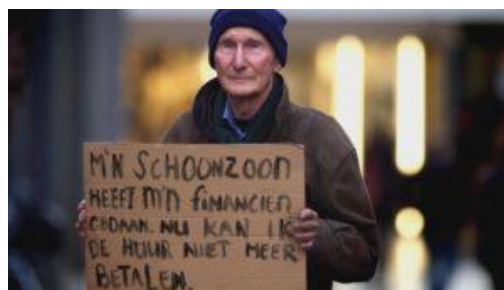 M'N SCHOONZOON
HEEFT M'N FINANCIEN
GEDAAN. NU KAN IK
DE HUUR NIET MEER
BETALEN.